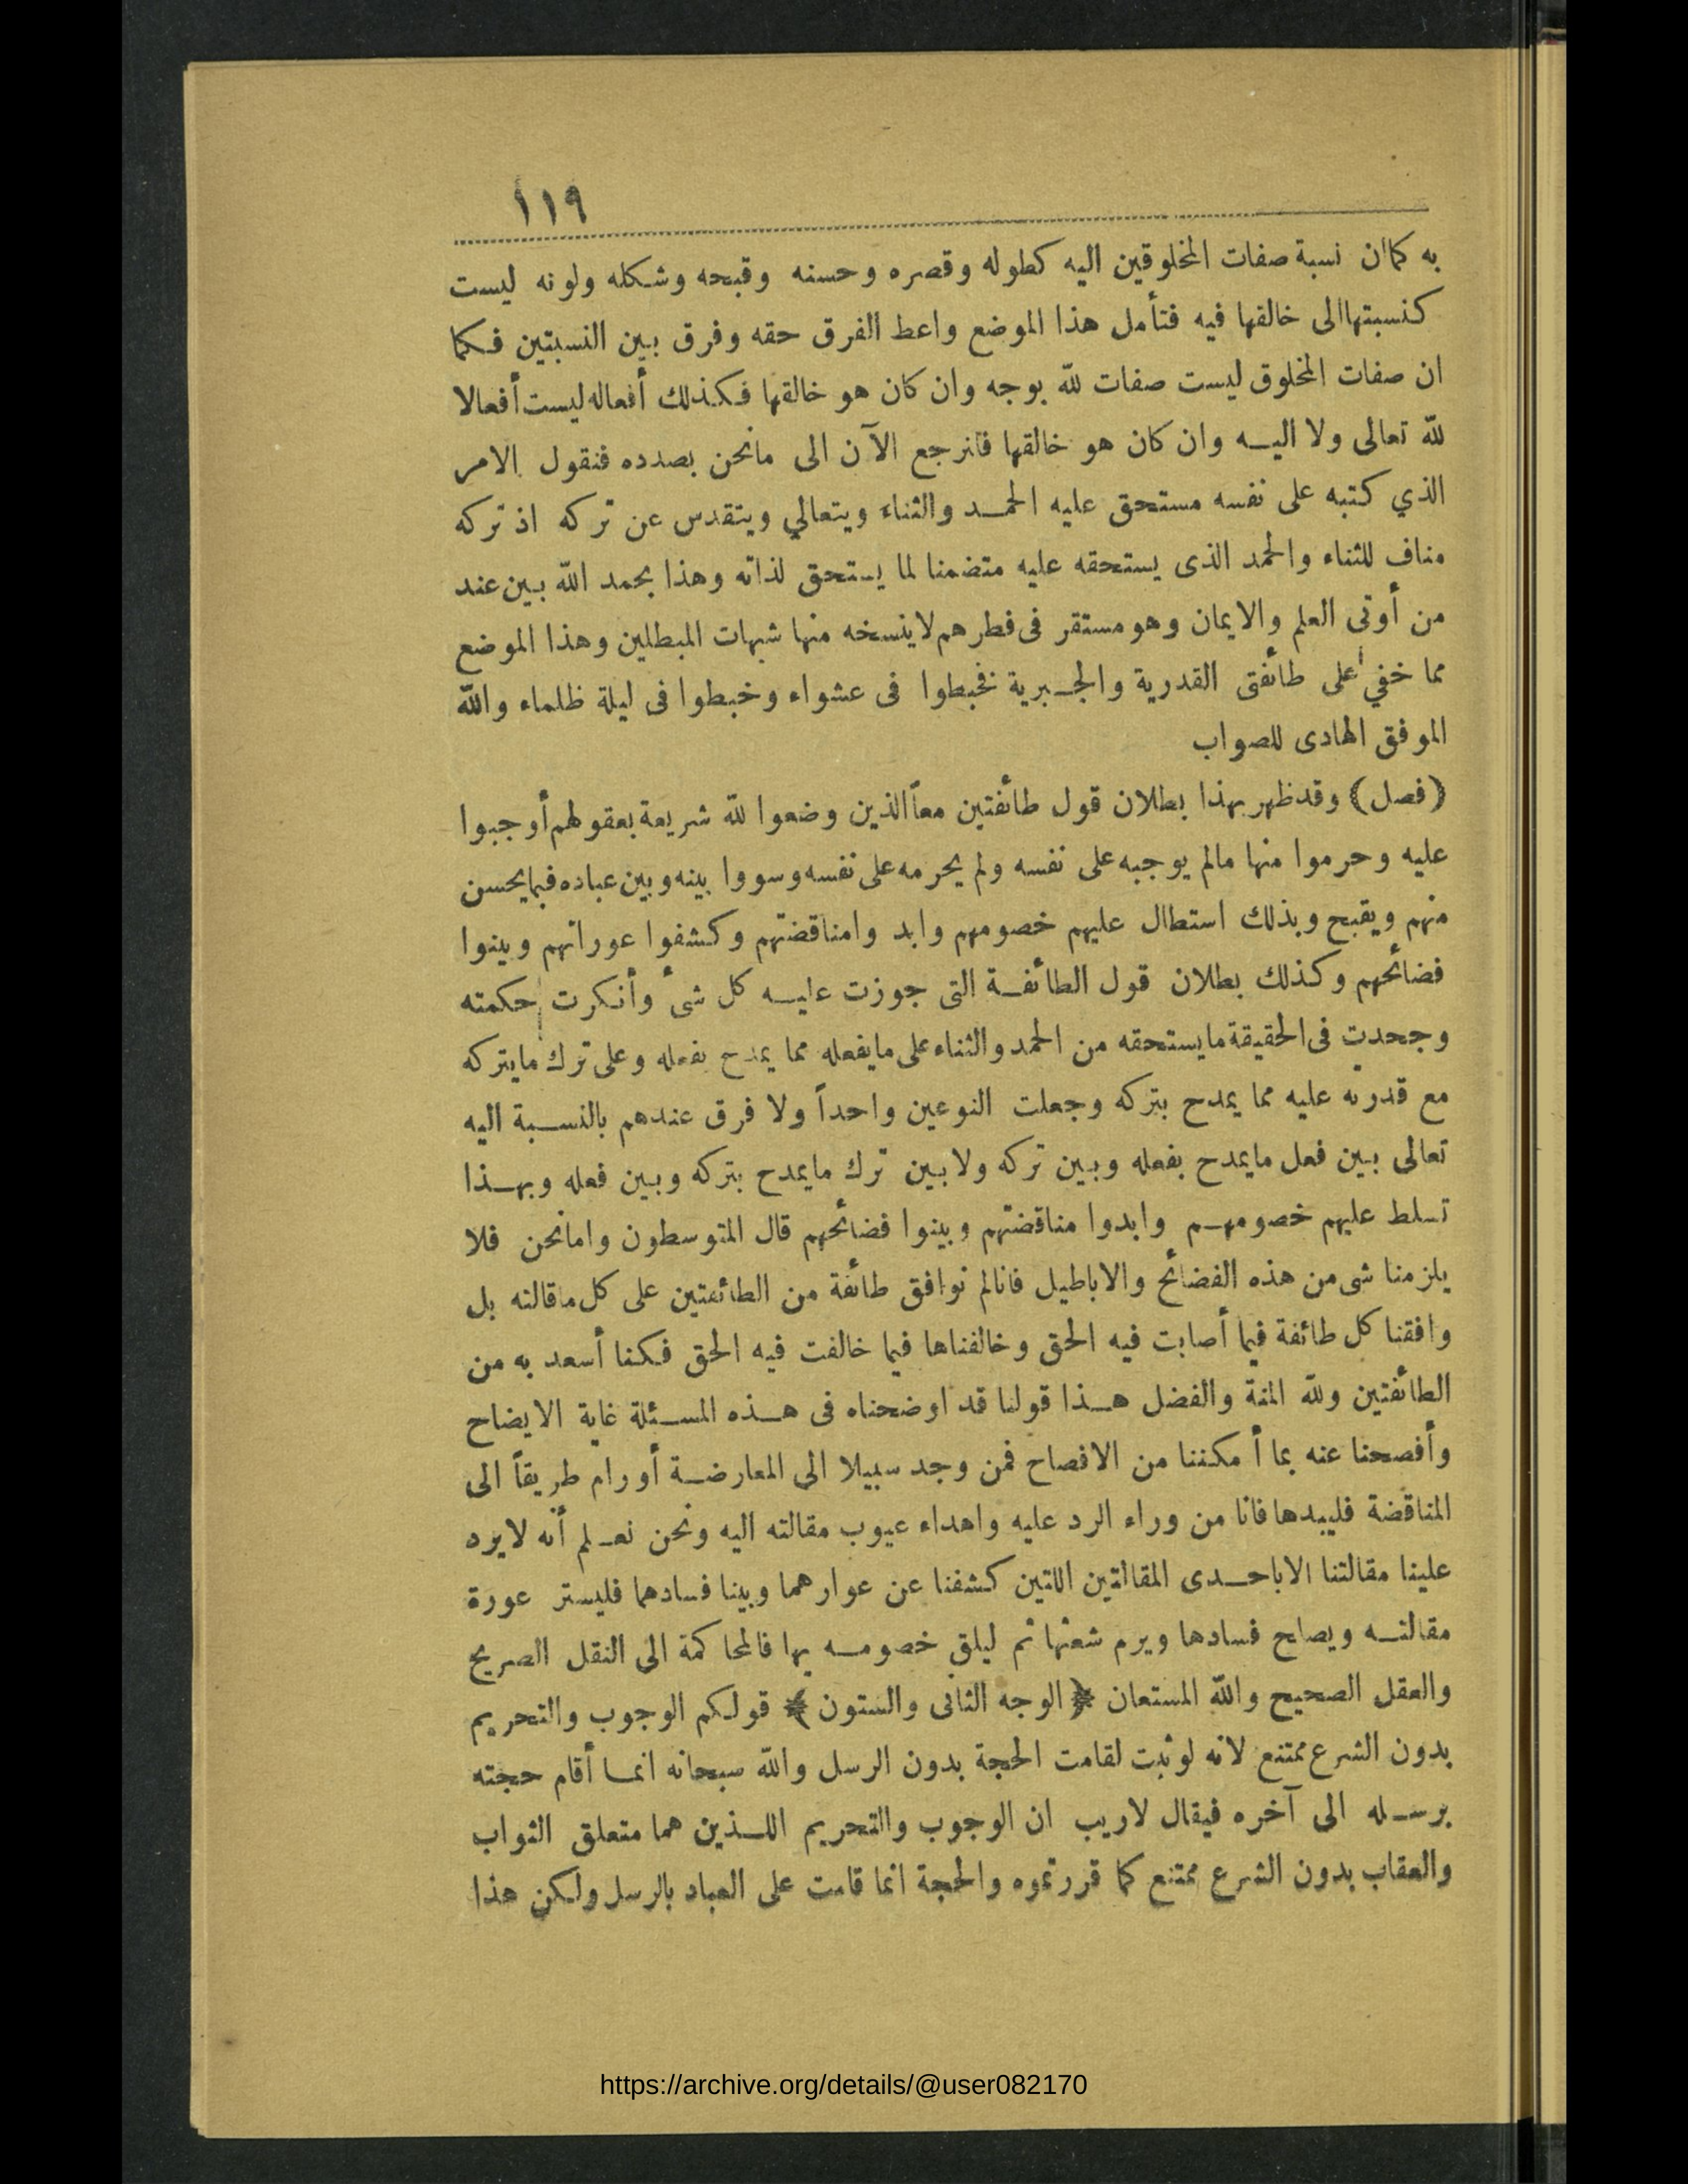 ١١٩
به كماان نسبة صفات المخلوقين اليه كطوله وقصره وحسنه وقبحه وشكله ولونه ليست
كنسبتهاالى خالقها فيه فتأمل هذا الموضع واعط الفرق حقه وفرق بين النسبتين فكما
ان صفات المخلوق ليست صفات لله بوجه وان كان هو خالقها فكذلك أفعاله ليست أفعالا
لله تعالى ولا اليه وان كان هو خالقها فلنرجع الآن الى مانحن بصدده فنقول الامر
الذي كتبه على نفسه مستحق عليه الحمد والثناء ويتعالي ويتقدس عن تركه اذ تركه
مناف للثناء والحمد الذى يستحقه عليه متضمنا لما يستحق لذاته وهذا بحمد الله بين عند
من أوتى العلم والايمان وهو مستقر فى فطرهم لاينسخه منها شبهات المبطلين وهذا الموضع
مما خفي على طائفتى القدرية والجبرية فخبطوا فى عشواء وخبطوا فى ليلة ظلماء والله
الموفق الهادى للصواب
(فصل) وقد ظهر بهذا بطلان قول طائفتين معاً الذين وضعوا لله شريعة بعقولهم أوجبوا
عليه وحرموا منها مالم يوجبه على نفسه ولم يحرمه على نفسه وسووا بينه وبين عباده فيما يحسن
منهم ويقبح وبذلك استطال عليهم خصومهم وابد وامناقضتهم وكشفوا عوراتهم وبينوا
فضائحهم وكذلك بطلان قول الطائفة التى جوزت عليه كل شئ وأنكرت حكمته
وجحدت فى الحقيقة مايستحقه من الحمد والثناء على مايفعله مما يمدح بفعله وعلى ترك مايتركه
مع قدرته عليه مما يمدح بتركه وجعلت النوعين واحداً ولا فرق عندهم بالنسبة اليه
تعالى بين فعل مايمدح بفعله وبين تركه ولا بين ترك مايمدح بتركه وبين فعله وبهذا
تسلط عليهم خصومهم وابدوا مناقضتهم وبينوا فضائحهم قال المتوسطون وامانحن فلا
يلزمنا شى من هذه الفضائح والاباطيل فانالم نوافق طائفة من الطائفتين على كل ماقالته بل
وافقنا كل طائفة فيما أصابت فيه الحق وخالفناها فيما خالفت فيه الحق فكنا أسعد به من
الطائفتين ولله المنة والفضل هذا قولنا قد اوضحناه فى هذه المسئلة غاية الايضاح
وأفصحنا عنه بما أمكننا من الافصاح فمن وجد سبيلا الى المعارضة أو رام طريقاً الى
المناقضة فليبدها فانا من وراء الرد عليه واهداء عيوب مقالته اليه ونحن نعلم أنه لايرد
علينا مقالتنا الاباحدى المقالتين اللتين كشفنا عن عوارهما وبينا فسادهما فليستر عورة
مقالته ويصلح فسادها ويرم شعثها ثم ليلق خصومه بها فالمحاكمة الى النقل الصريح
والعقل الصحيح والله المستعان ﴿الوجه الثانى والستون﴾ قولكم الوجوب والتحريم
بدون الشرع ممتنع لانه لو ثبت لقامت الحجة بدون الرسل والله سبحانه انما أقام حجته
برسله الى آخره فيقال لاريب ان الوجوب والتحريم اللذين هما متعلق الثواب
والعقاب بدون الشرع ممتنع كما قررتموه والحجة انما قامت على العباد بالرسل ولكن هذا
https://archive.org/details/@user082170